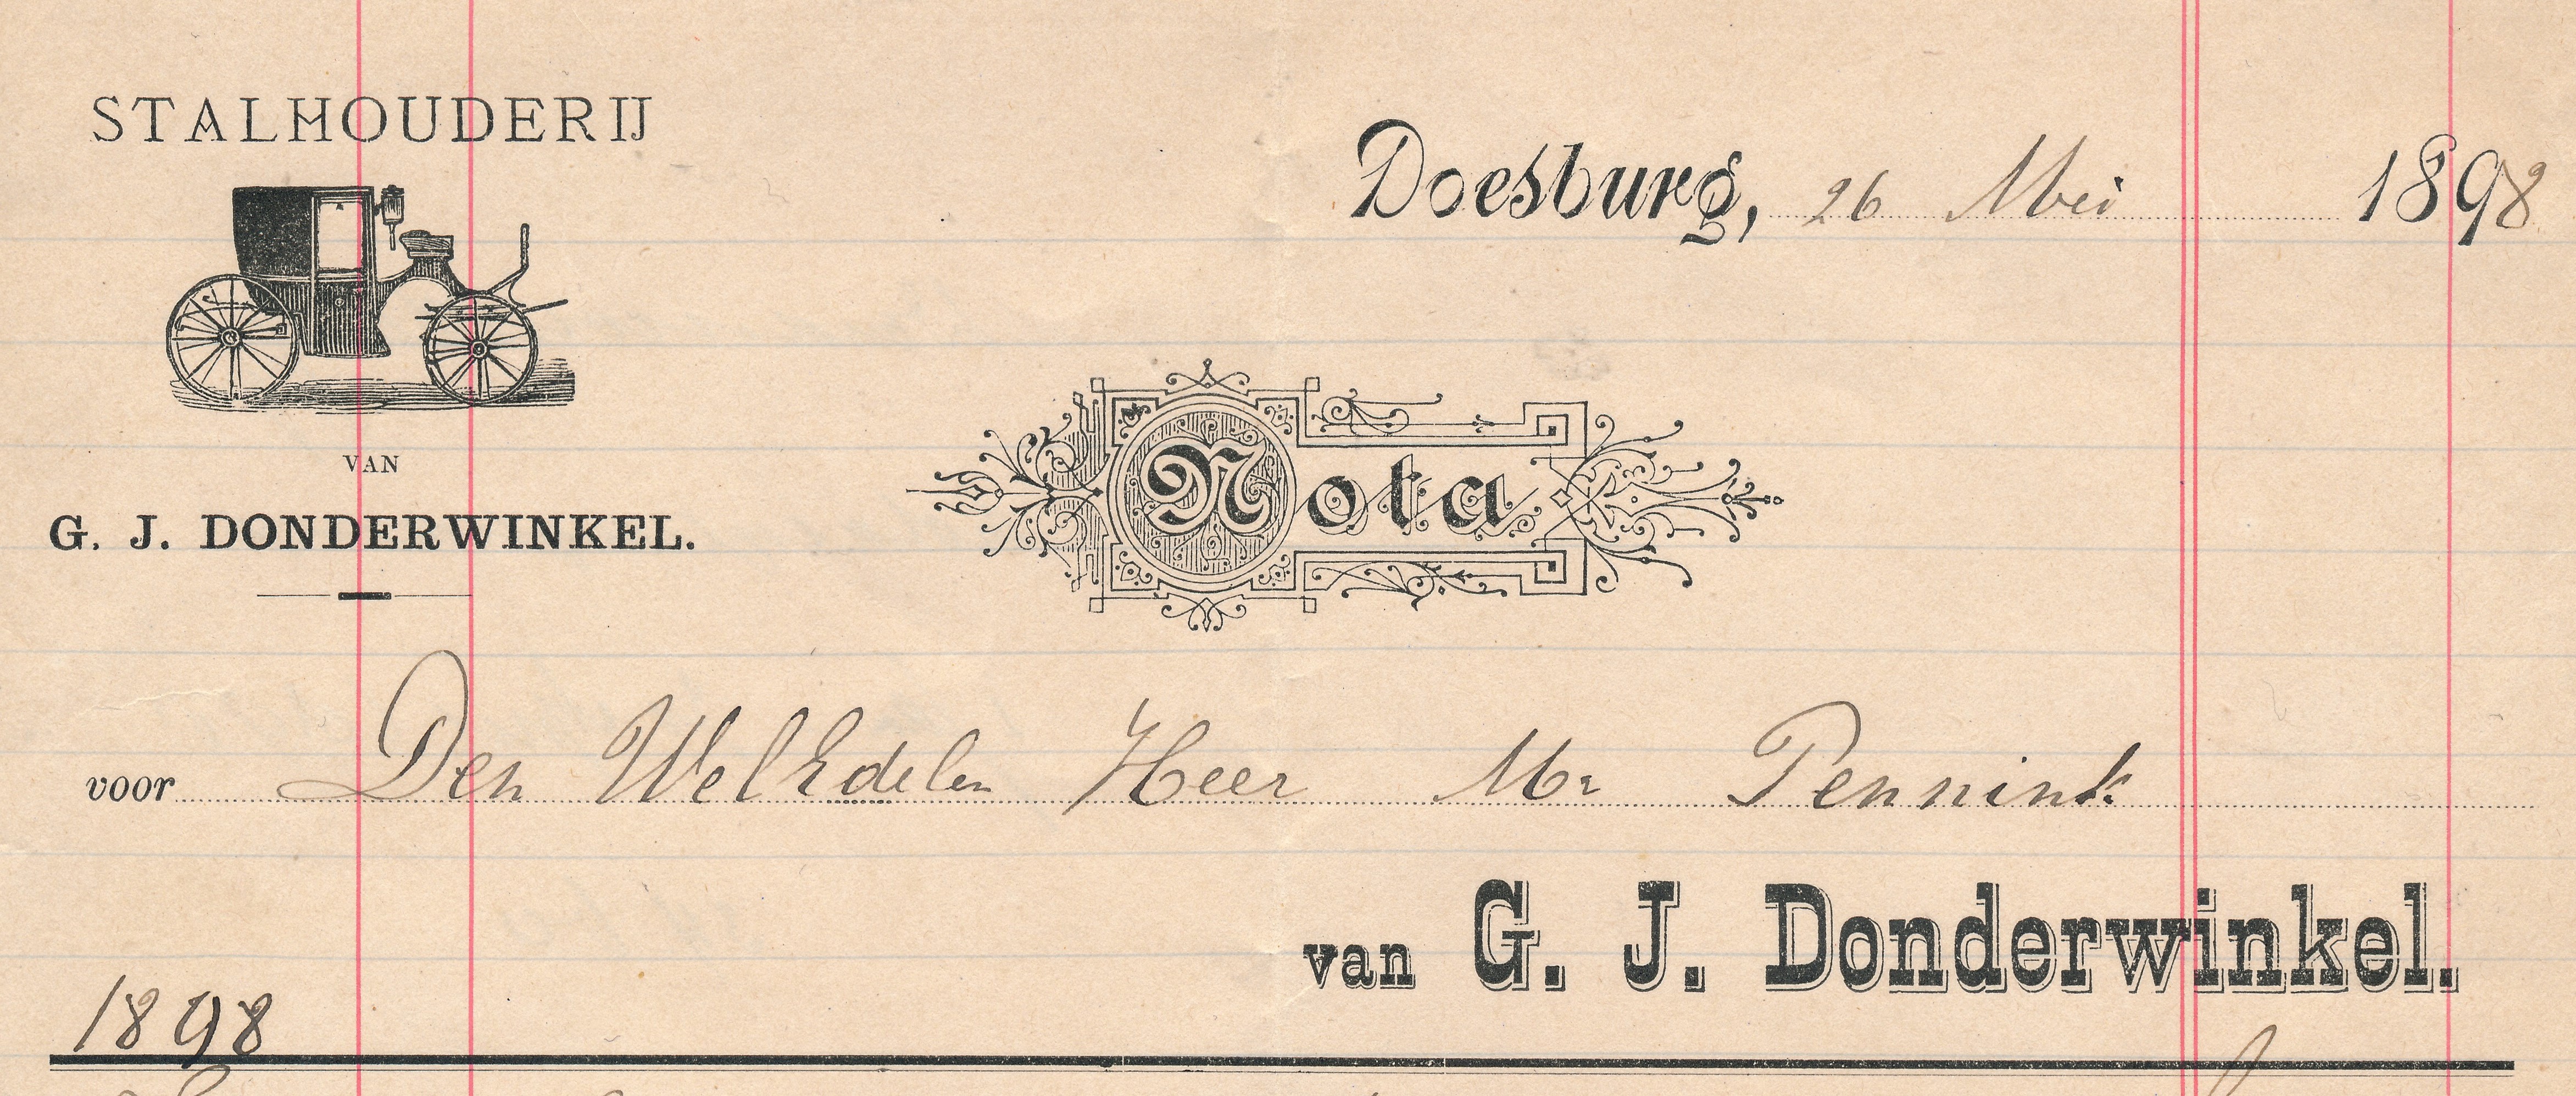 STALHOUDERIJ
Doesburg, 26 Mei 1898
VAN
G. J. DONDERWINKEL.
Nota
voor Den WelEdelen Heer Mr Pennink
van G. J. Donderwinkel.
1898